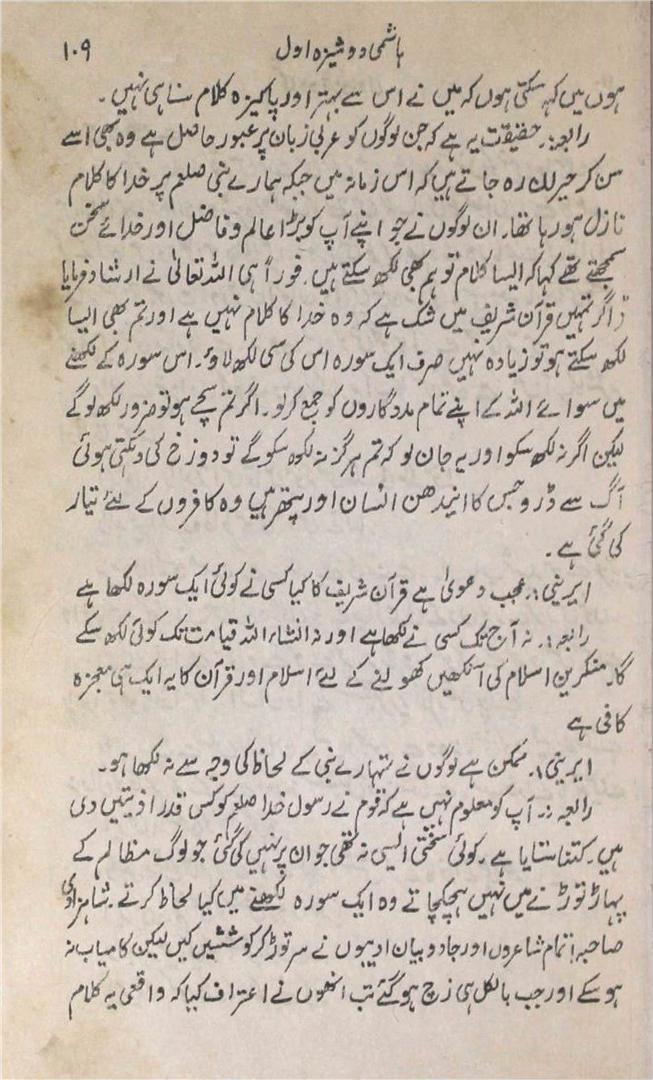 ہاشمی دوشیزہ اول ۱۰۹
ہوں میں کہہ سکتی ہوں کہ میں نے اس سے بہتر اور پاکیزہ کلام سنا ہی نہیں ۔
رابعہ:۔ حقیقت یہ ہے کہ جن لوگوں کو عربی زبان پر عبور حاصل ہے وہ بھی اسے
سن کر حیران رہ جاتے ہیں کہ اس زمانہ میں جبکہ ہمارے نبی صلعم پر خدا کا کلام
نازل ہو رہا تھا۔ ان لوگوں نے جو اپنے آپ کو بڑا عالم و فاضل اور خدائے سخن
سمجھتے تھے کہا کہ ایسا کلام تو ہم بھی لکھ سکتے ہیں۔ فوراً ہی اللہ تعالیٰ نے ارشاد فرمایا
"اگر تمہیں قرآن شریف میں شک ہے کہ وہ خدا کا کلام نہیں ہے اور تم بھی ایسا
لکھ سکتے ہو تو زیادہ نہیں صرف ایک سورہ اس کی سی لکھ لاؤ۔ اس سورہ کے لکھنے
میں سوائے اللہ کے اپنے تمام مددگاروں کو جمع کر لو۔ اگر تم سچے ہو تو ضرور لکھ لو گے
لیکن اگر نہ لکھ سکو اور یہ جان لو کہ تم ہرگز نہ لکھ سکو گے تو دوزخ کی دہکتی ہوئی
آگ سے ڈرو جس کا ایندھن انسان اور پتھر ہیں وہ کافروں کے لئے تیار
کی گئی ہے ۔
ایرینی:۔ عجب دعویٰ ہے قرآن شریف کا کیا کسی نے کوئی ایک سورہ لکھا ہے
رابعہ:۔ نہ آج تک کسی نے لکھا ہے اور نہ انشاء اللہ قیامت تک کوئی لکھ سکے
گا۔ منکرین اسلام کی آنکھیں کھولنے کے لئے اسلام اور قرآن کا یہ ایک ہی معجزہ
کافی ہے
ایرینی:۔ ممکن ہے لوگوں نے تمہارے نبی کے لحاظ کی وجہ سے نہ لکھا ہو ۔
رابعہ:۔ آپ کو معلوم نہیں ہے کہ قوم نے رسول خدا صلعم کو کس قدر اذیتیں دی
ہیں۔ کتنا ستایا ہے۔ کوئی سختی ایسی نہ تھی جو ان پر نہیں کی گئی جو لوگ مظالم کے
پہاڑ توڑنے میں نہیں ہچکچاتے وہ ایک سورہ لکھنے میں کیا لحاظ کرتے ۔ شاہزادی
صاحبہ! تمام شاعروں اور جادو بیان ادیبوں نے سر توڑ کر کوششیں کیں لیکن کامیاب نہ
ہو سکے اور جب بالکل ہی زچ ہو گئے تب انھوں نے اعتراف کیا کہ واقعی یہ کلام